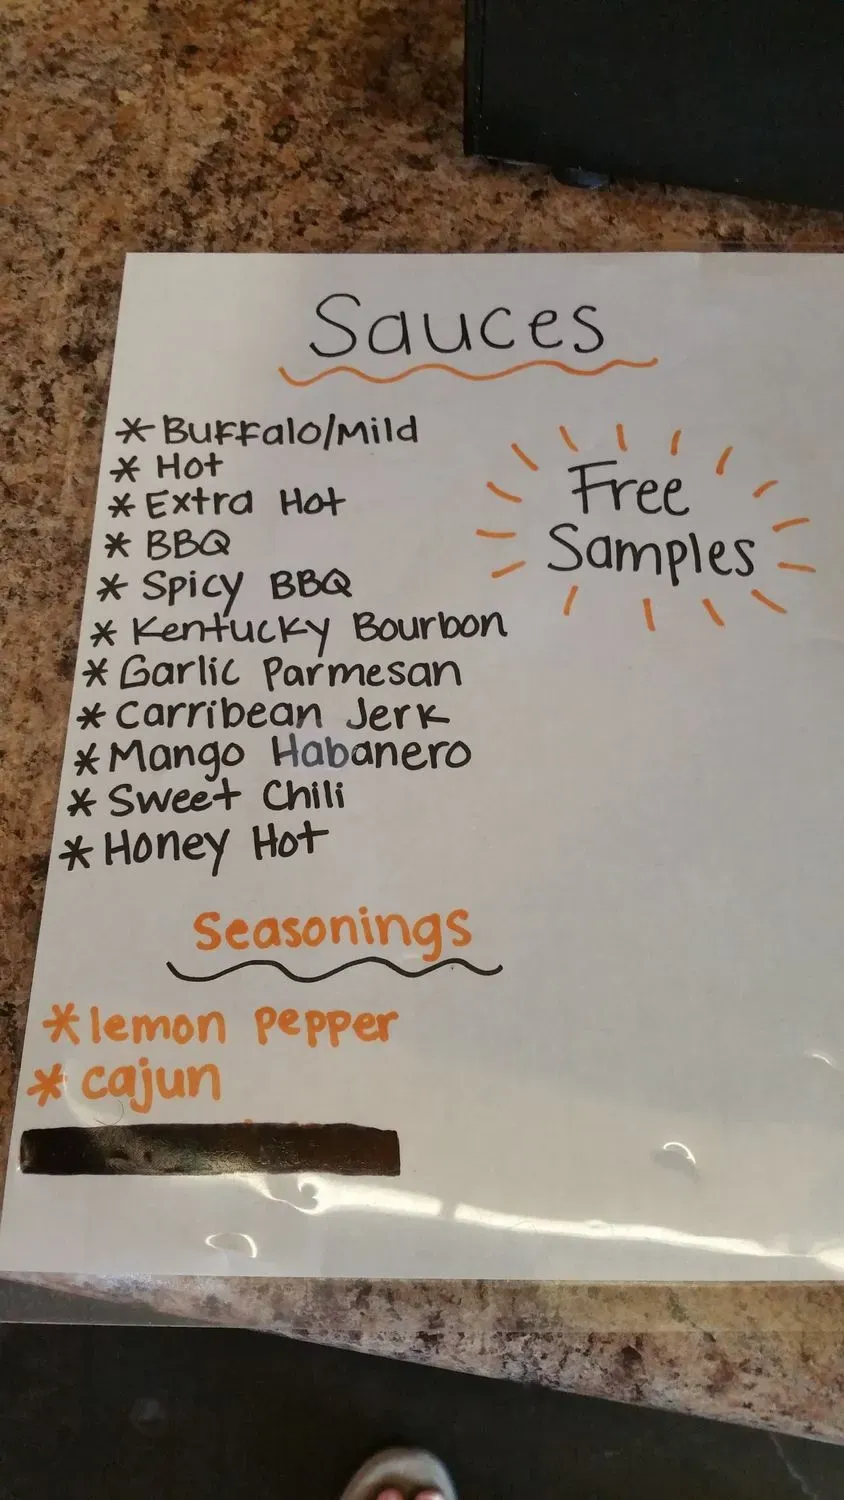 Sauces
* Buffalo/Mild
* Hot
* Extra Hot
* BBQ
* Spicy BBQ
* Kentucky Bourbon
* Garlic Parmesan
* Carribean Jerk
* Mango Habanero
* Sweet Chili
* Honey Hot
Free
Samples
Seasonings
* lemon pepper
* cajun